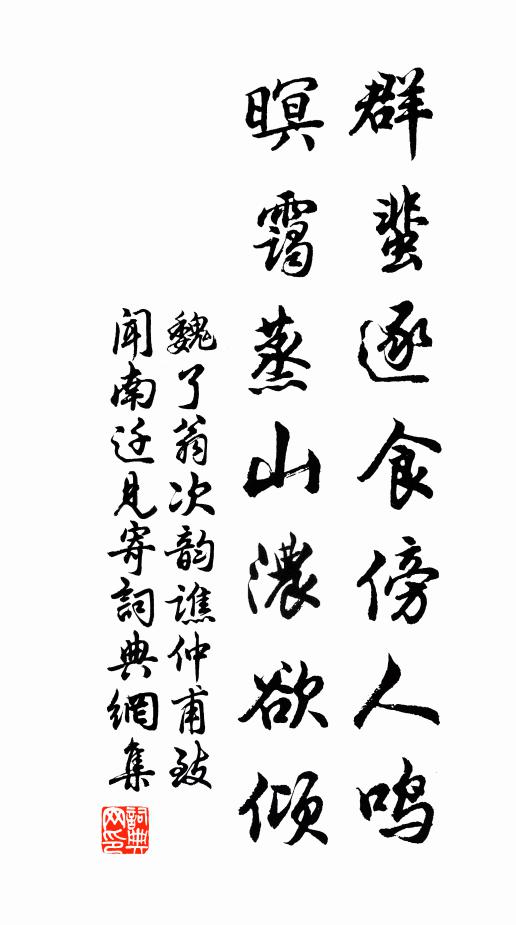 群蜚逐食傍人鸣
暝霭蒸山濃欲倾
魏了翁次韵譙仲甫致
闻南迁见寄詞典網集
詞典网印